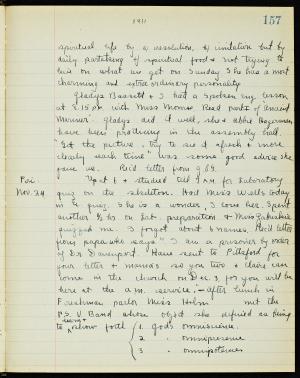 1911
157
spiritual life by a resolution, by imitation but by
daily partaking of spiritual food & not trying to
live on what we get on Sunday. She has a most
charming and extraordinary personality.
Gladys Bassett & I had a Spoken Eng. lesson
at 8.15 P.M. with Miss Morris. Read parts of "Ancient
Mariner". Gladys did it well, she & Abbie
have been practicing in the assembly hall.
"Get the picture, try to see it afresh & more
clearly each time" was some good advice she
gave us. Rec'd letter from
Fri. Up at 6 & studied till 9 A.M. for laboratory
Nov. 24 quiz on the skeleton. Had Miss Walls today
in quiz. She is a wonder, I love her. Spent
another 2 hrs on Lat. preparation & Miss
quizzed me. I forgot about 6 names. Rec'd letter
from papa who says "I am a prisoner by order
of Dr. Davenport. Have sent to Pittsford for
your letter & mama's so you two & Claire can
come in the church on Dec. 3, for you will be
here at the A.M. service." - After lunch in
Freshman parlor Miss met the
B.S.U. Band whose object she defined as being
to show forth 1. God's omniscience.
2 " omnipresence
3 " omnipotence